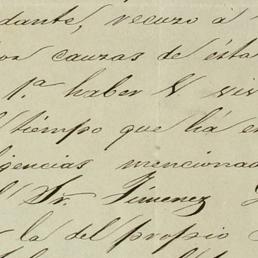 dante, recuso a
por cauzas de ésta
1.ª haber V vis
tiempo que há e
igencias mencionad
Sr. Jimenez
la del propio